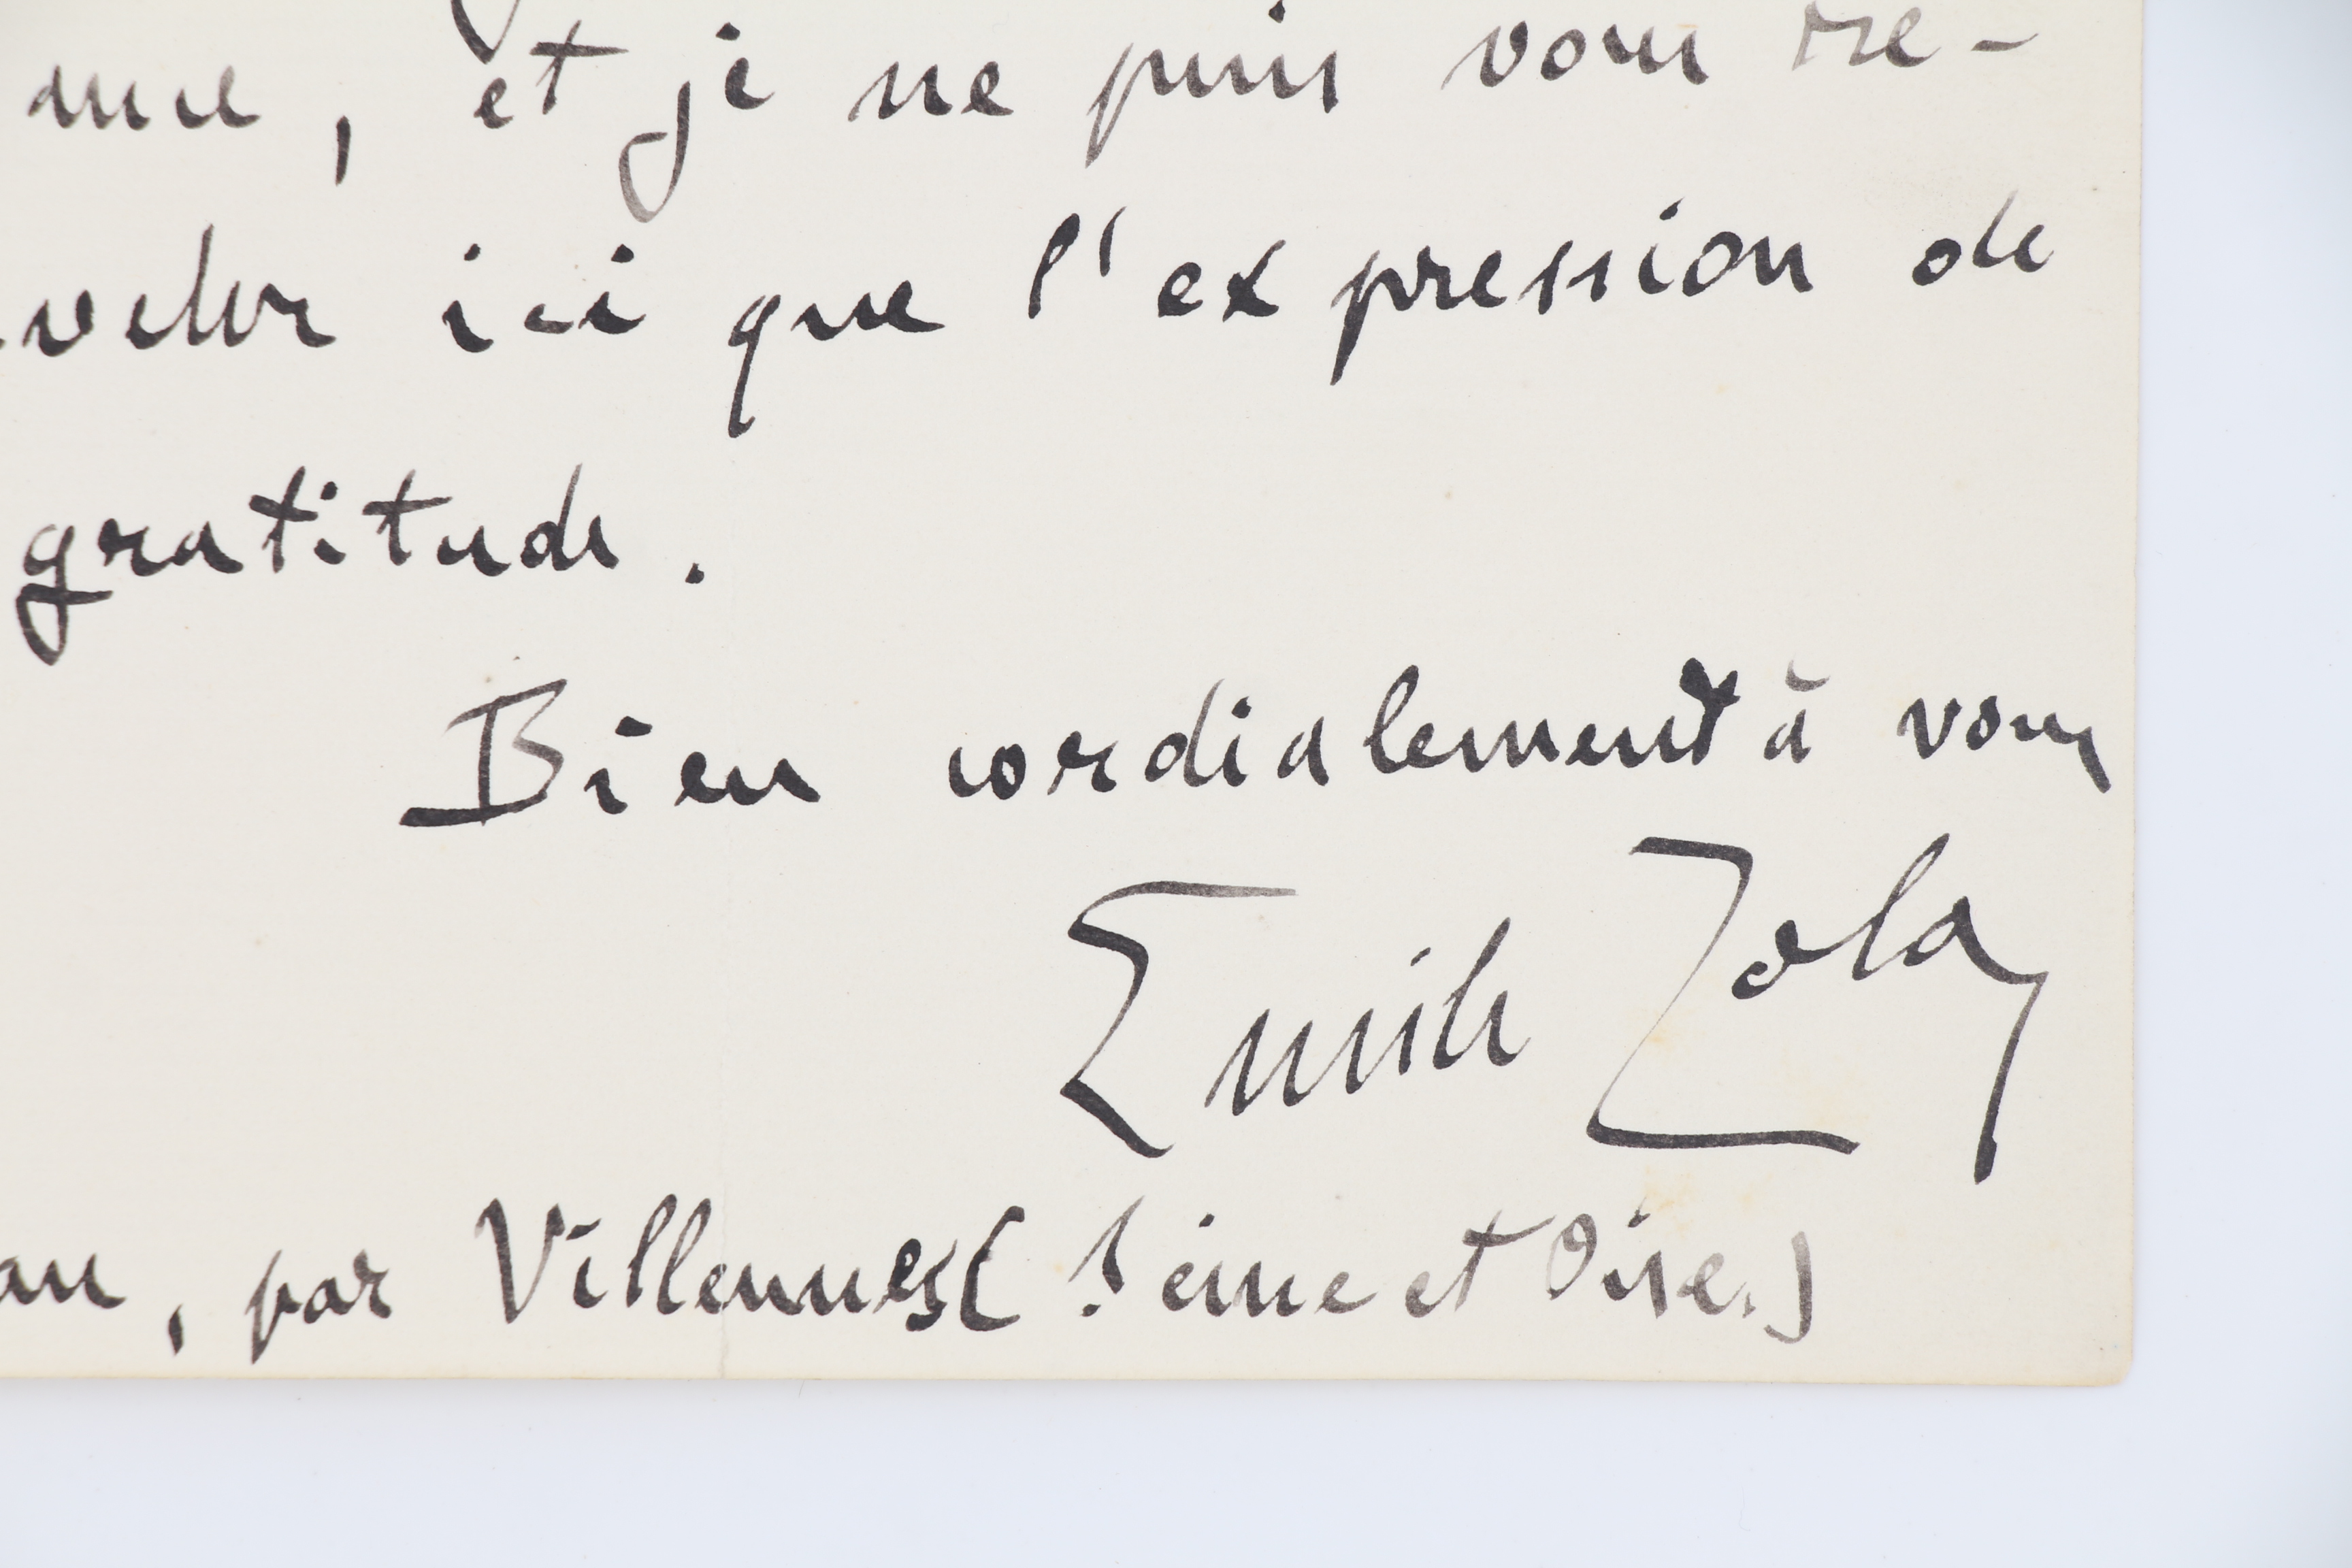 , et je ne puis vous re-
veler ici que l'expression de
gratitude.
Bien cordialement à vous
Emile Zola
an, par Villennes (Seine et Oise.)